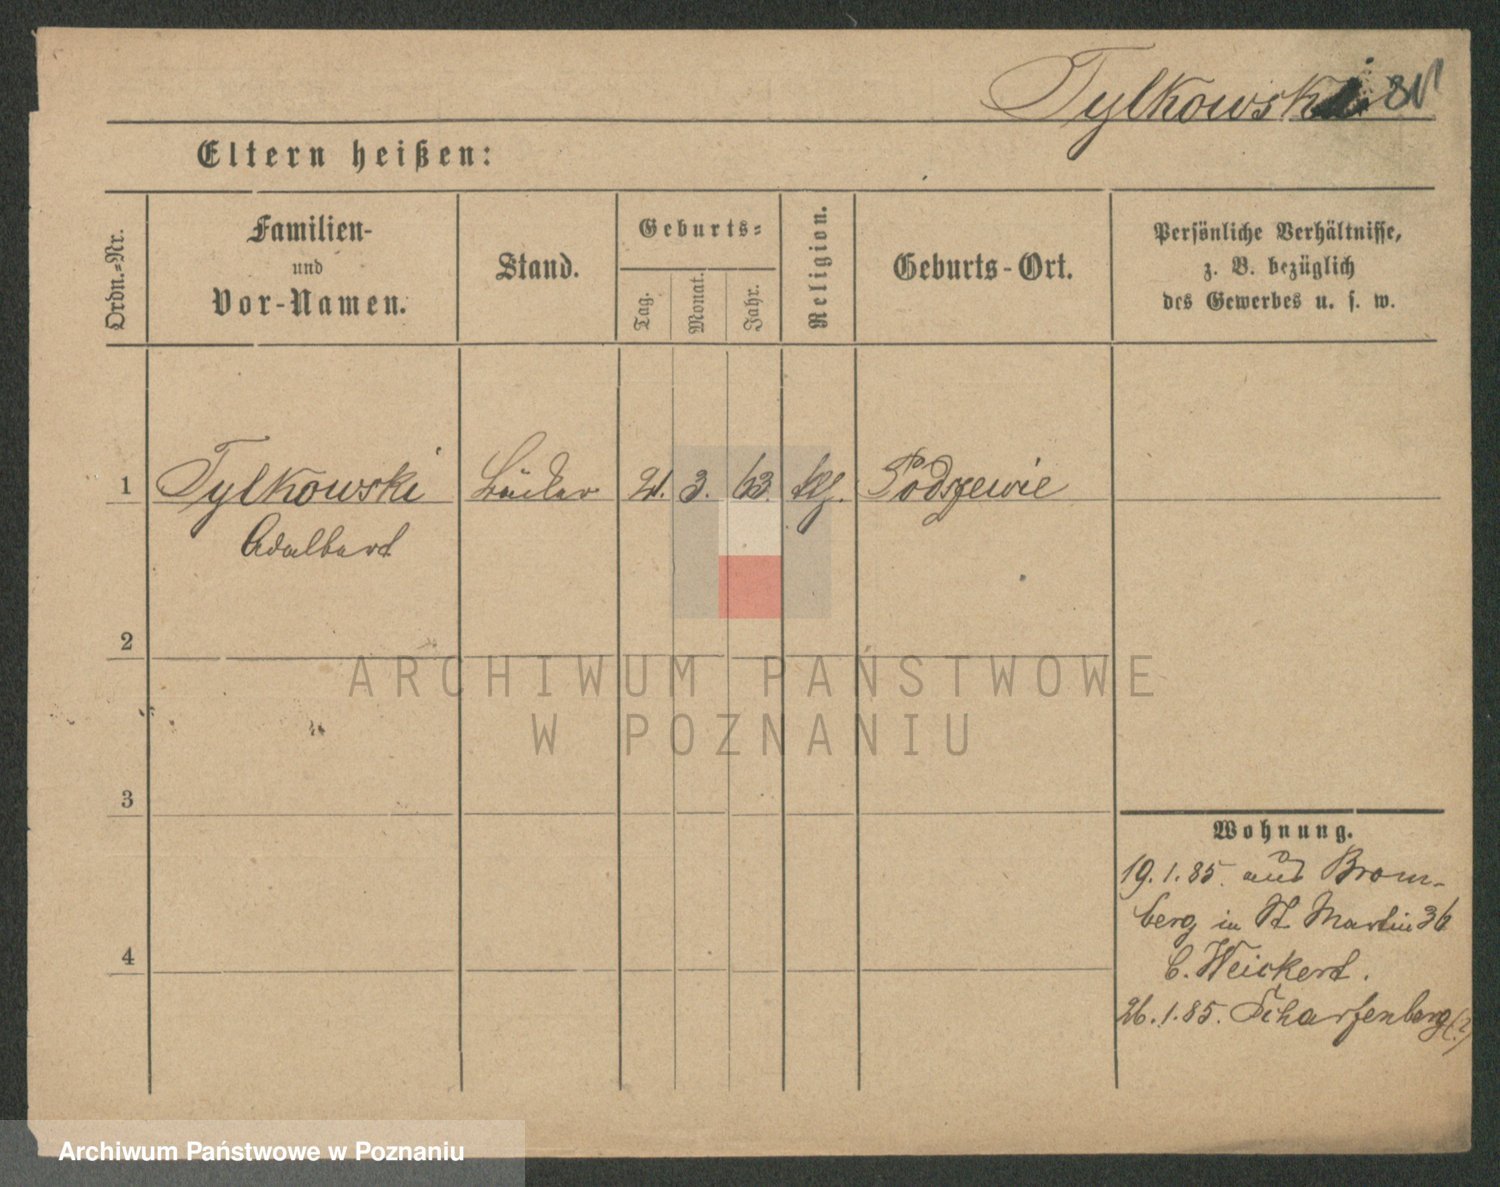 Tylkowski
Eltern heißen:
Ordn.=Nr.
Familien-
und
Vor-Namen.
Stand.
Geburts=
Tag.
Monat.
Jahr.
Religion.
Geburts-Ort.
Persönliche Verhältnisse,
z. B. bezüglich
des Gewerbes u. s. w.
1 Tylkowski Bäcker 3. 63. Podrzewie
Adalbert
2
3
4
Wohnung.
19.1.85. aus Brom-
berg in St Martin 36
b. Weickert.
26.1.85. Scharfenberg (?)
ARCHIWUM PAŃSTWOWE
W POZNANIU
Archiwum Państwowe w Poznaniu